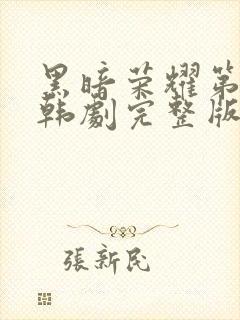 黑暗荣耀第
韩劇完整版
張新民